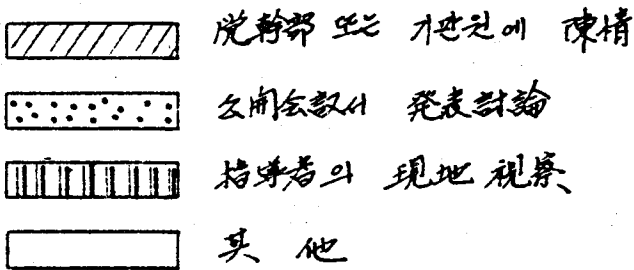 党幹部 또는 기관원에 陳情
公開会議서 発表討論
指導者의 現地 視察
其 他